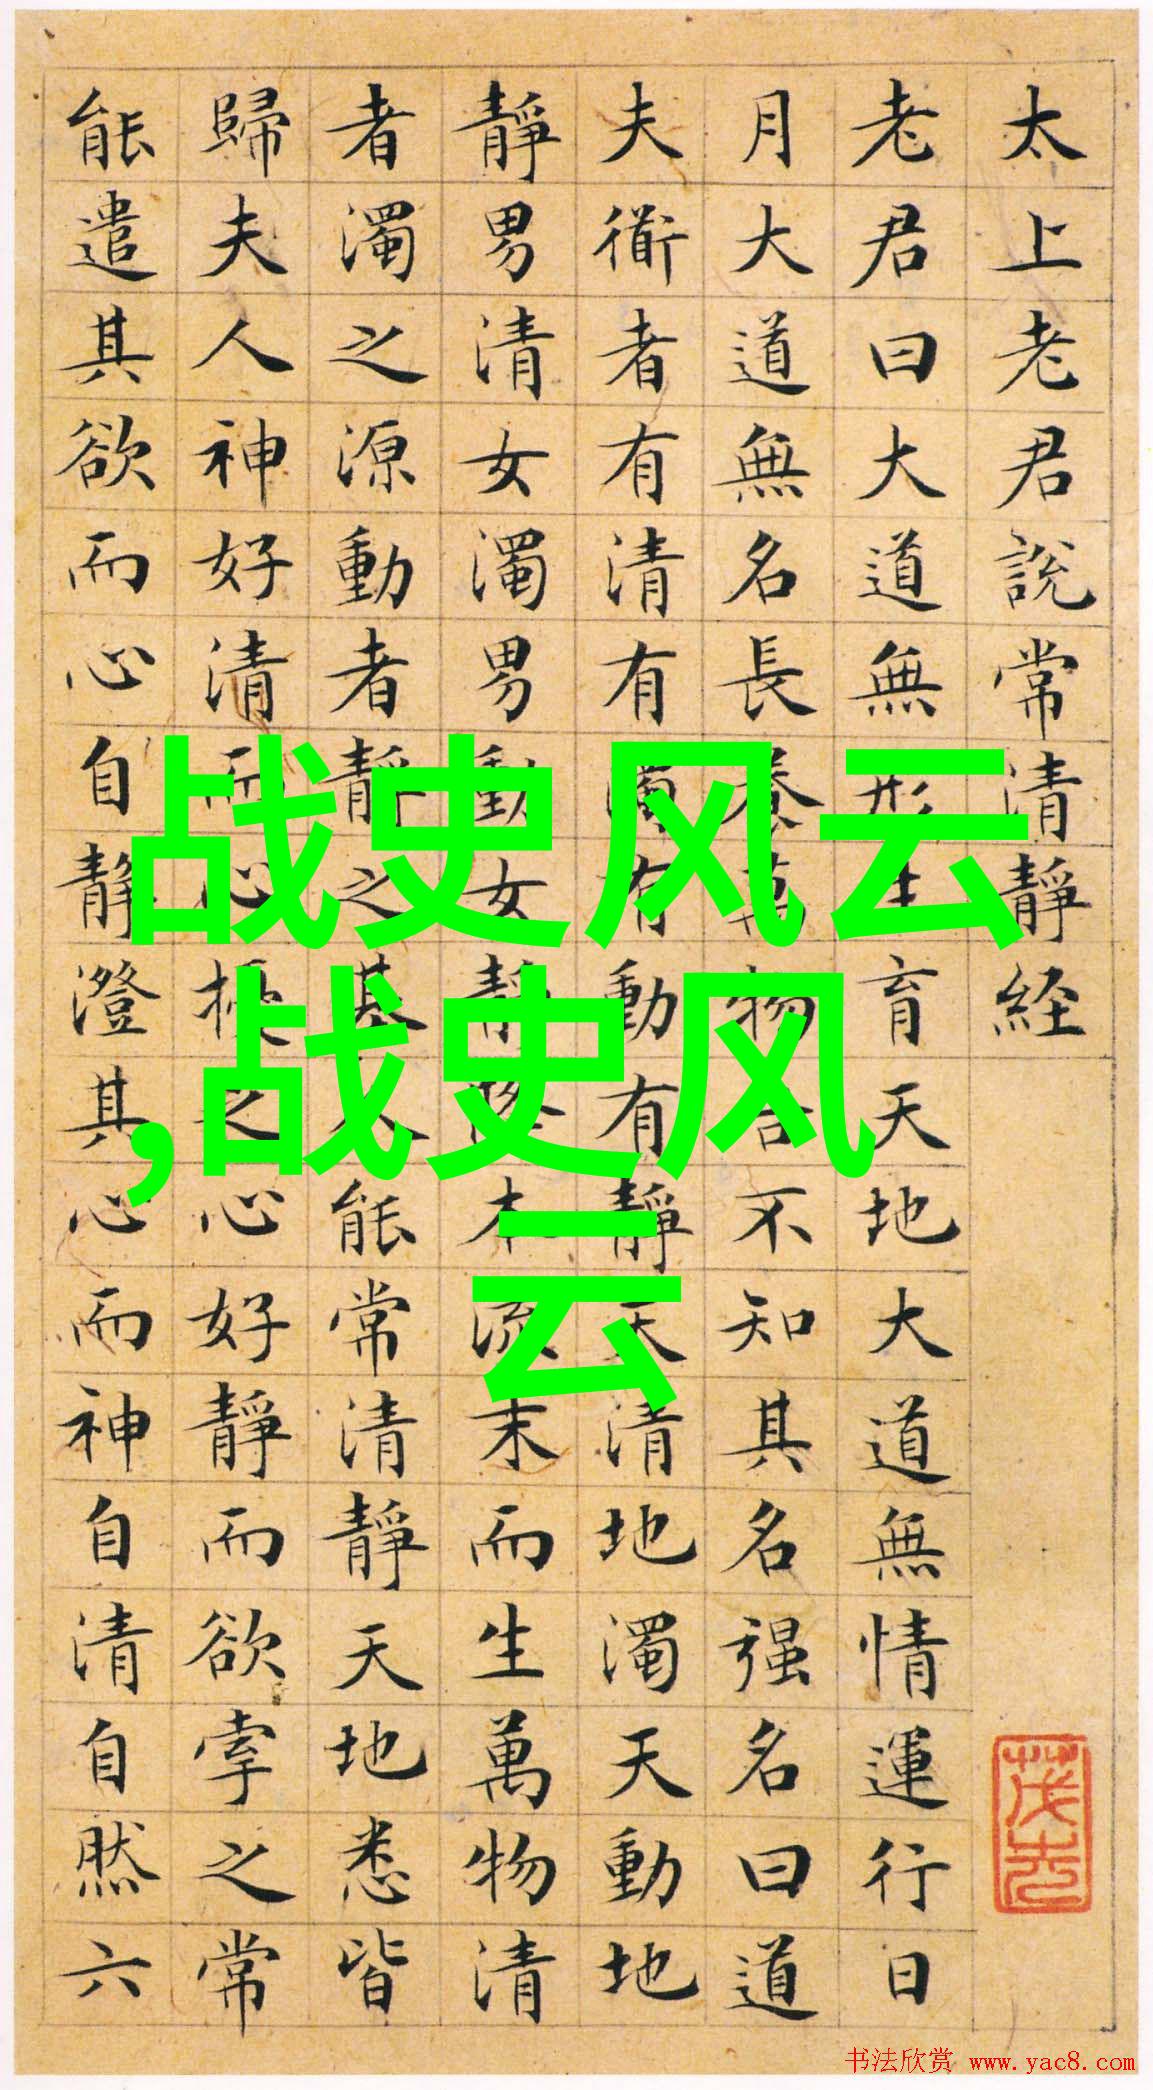 太上老君說常清靜経
老君曰大道無形生育天地大道無情運行日
月大道無名長養萬物吾不知其名强名曰道
夫衜者有清有濁有動有靜天清地濁天動地
靜男清女濁男動女靜降本流末而生萬物清
者濁之源動者靜之基人能常清靜天地悉皆
歸夫人神好清而心擾之心好靜而欲牽之常
能遣其欲而心自靜澄其心而神自清自然六
战史风云
,战史风
云
书法欣赏 www.yac8.com